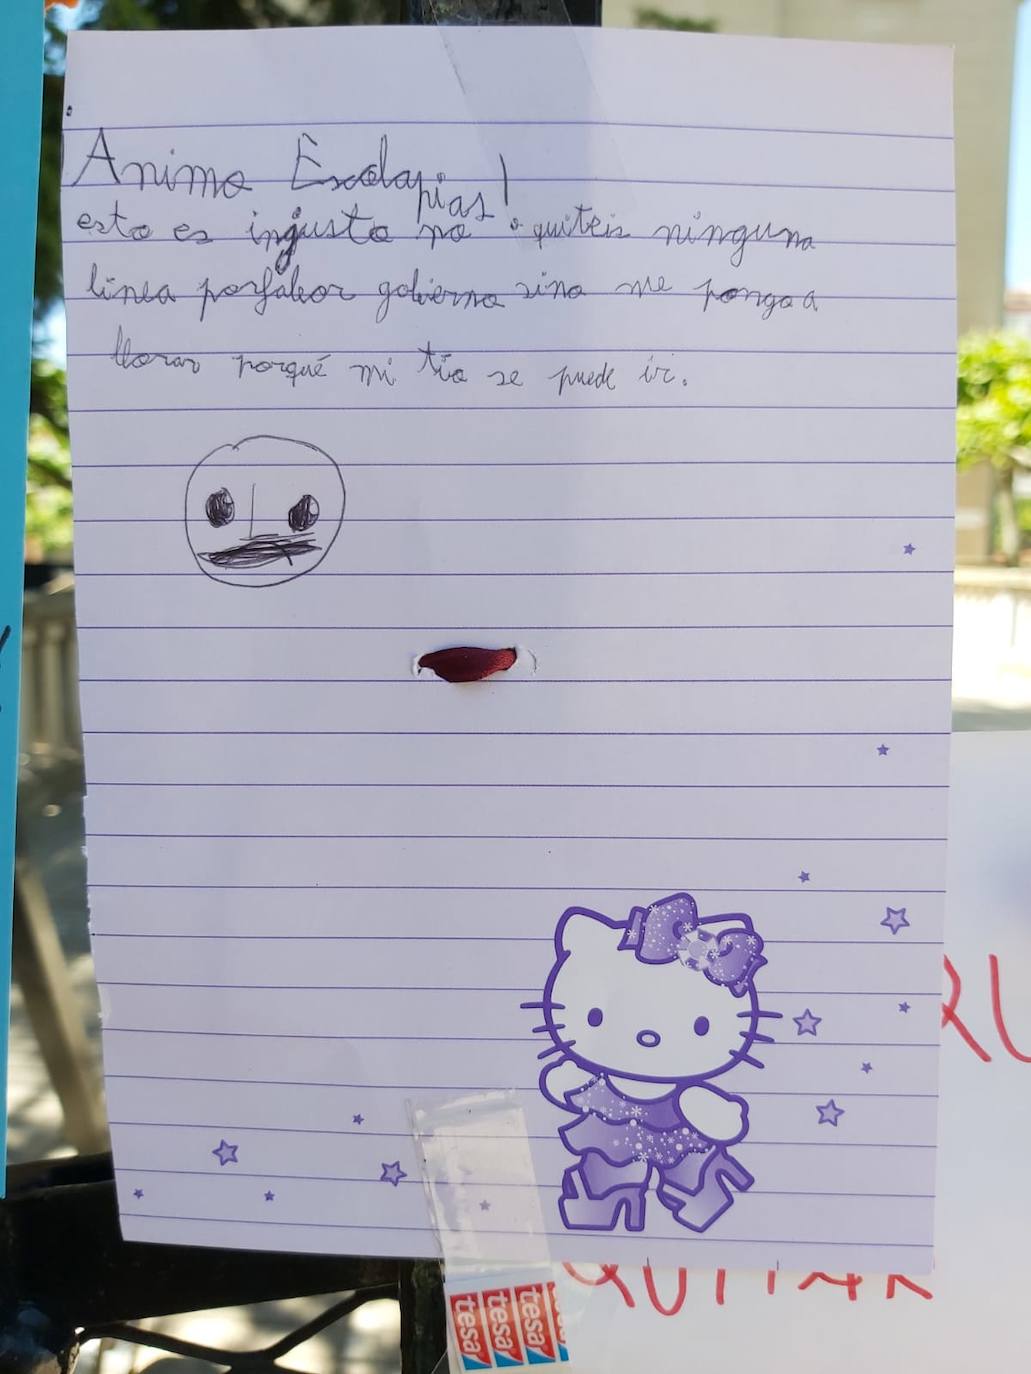 Animo Escolapias!
esto es injusto no quiteis ninguna
linea porfabor gobierno sino me pongo a
llorar porqué mi tio se puede ir.
QUITAR
tesa tesa tesa tesa